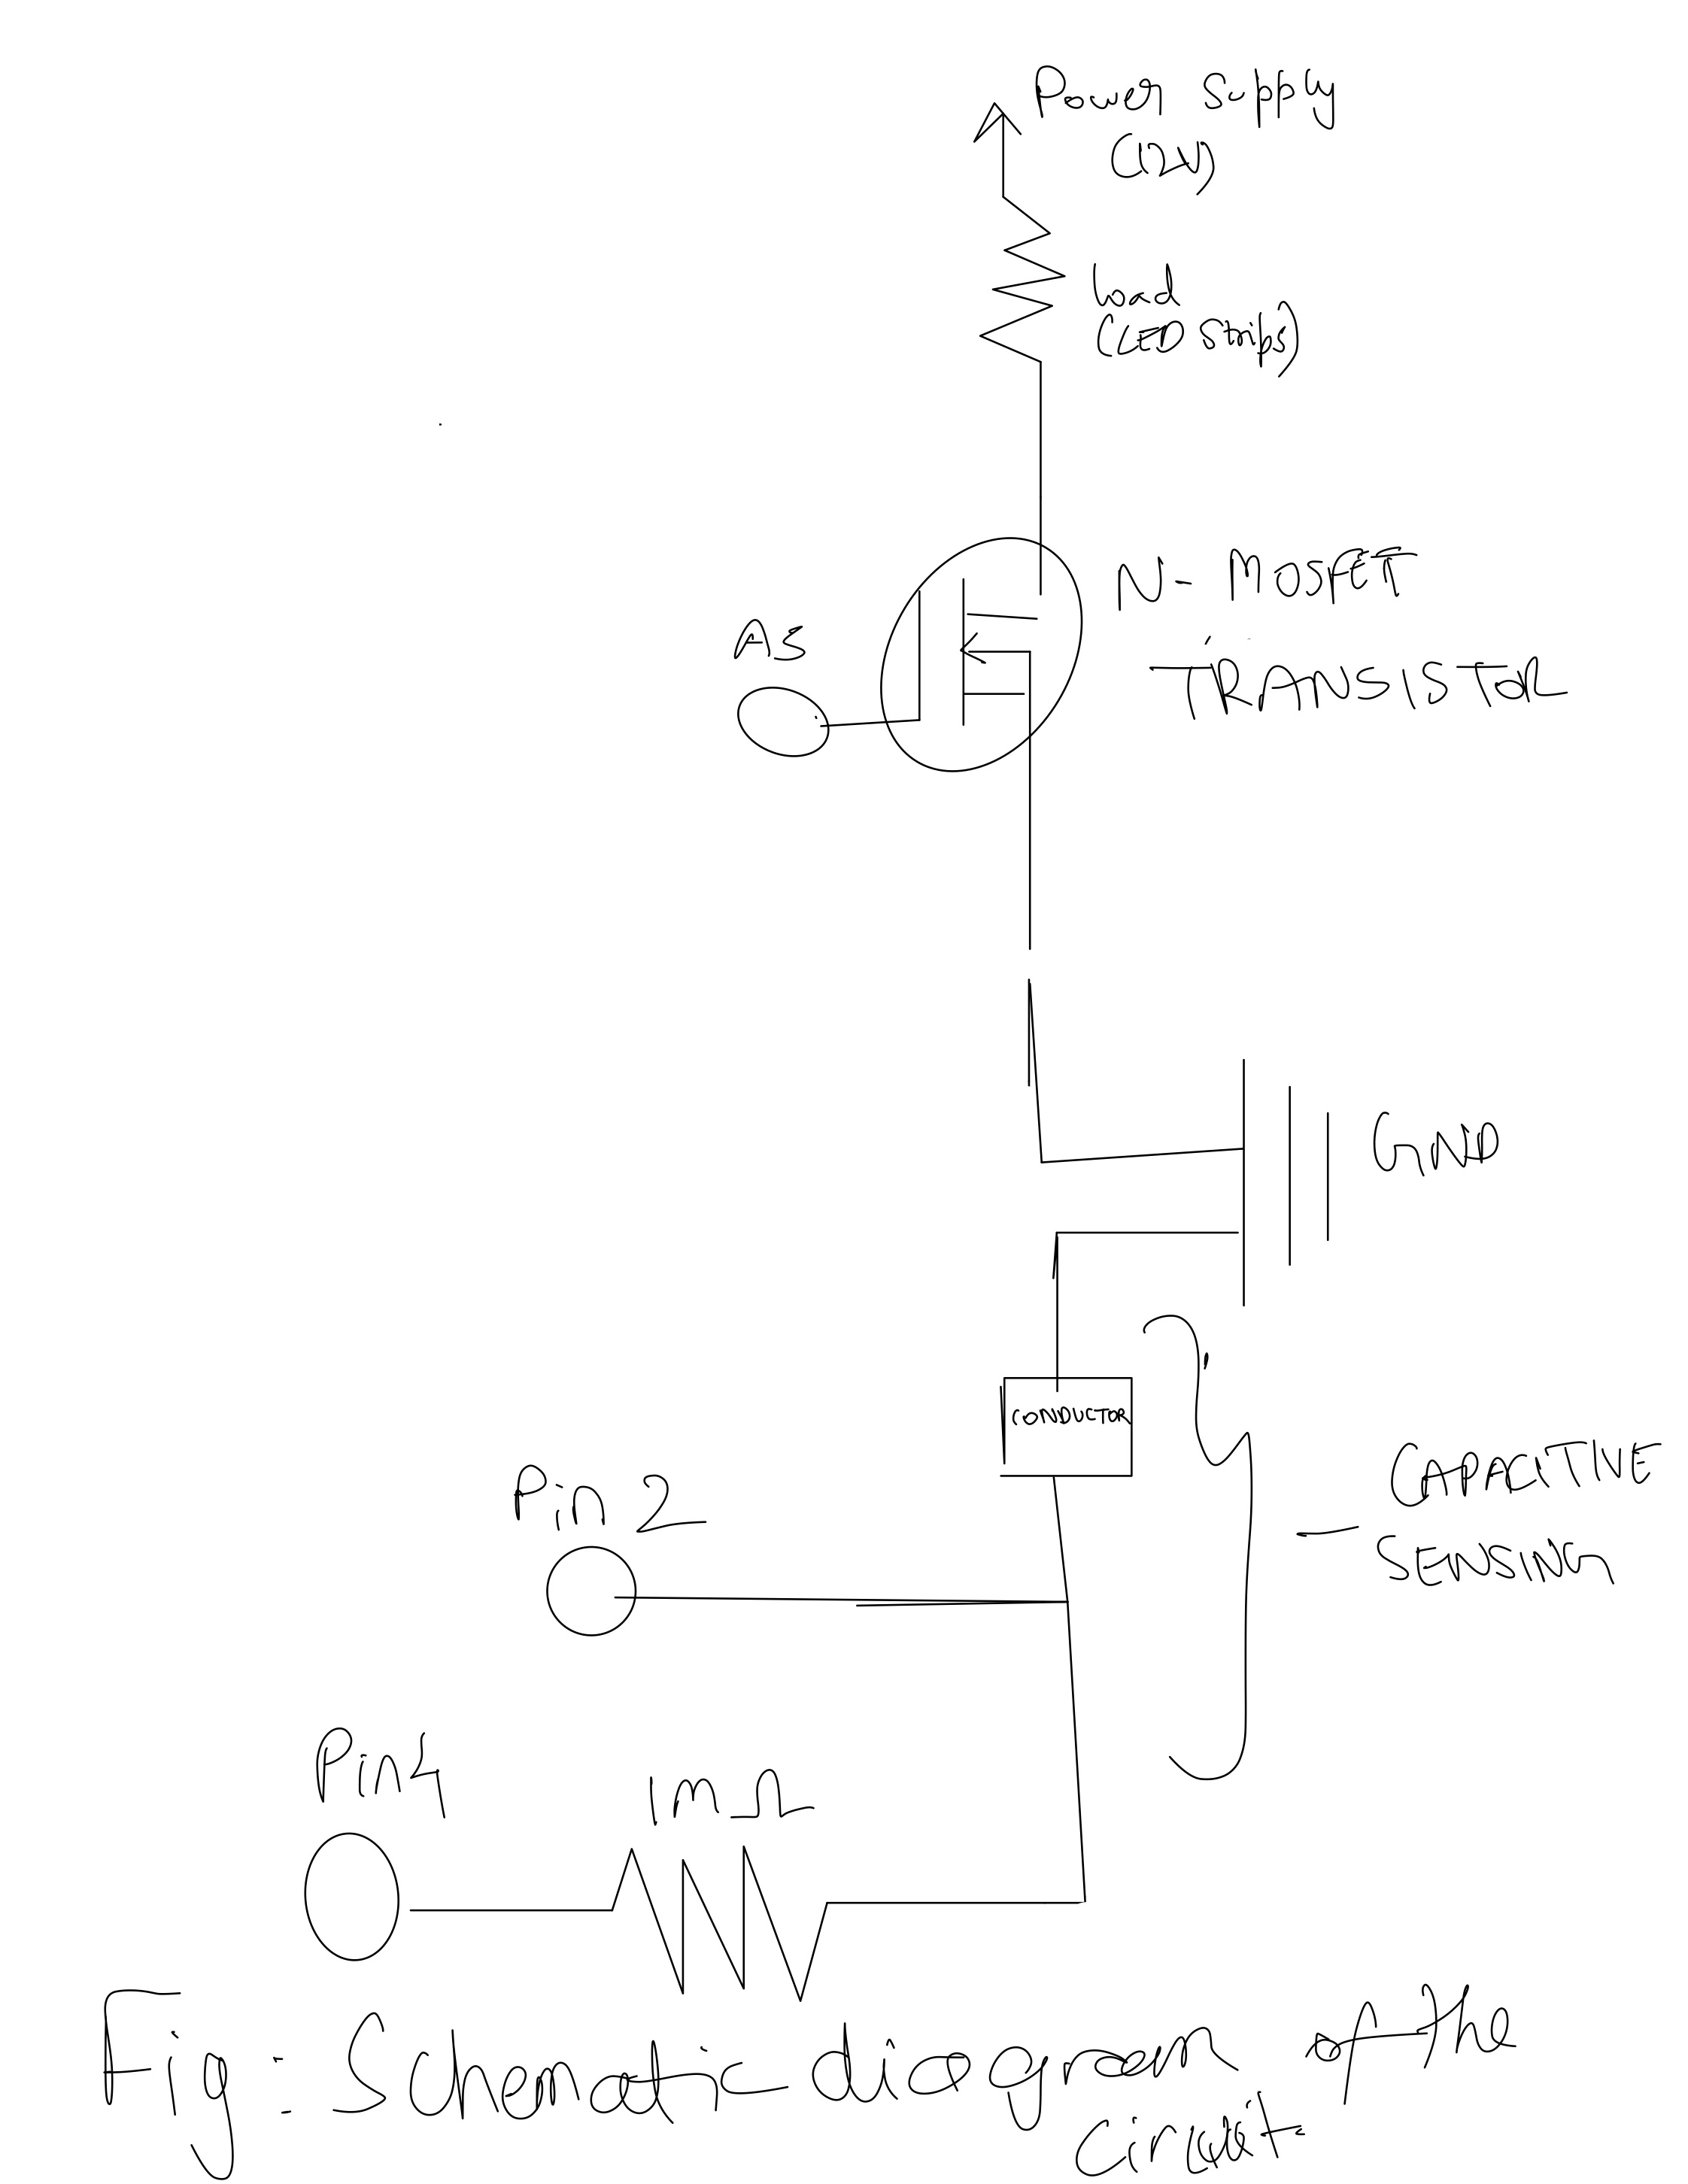 Power Supply
(12V)
Load
(LED Strips)
N- MOSFET
TRANSISTOR
A3
GND
CONDUCTOR
Pin 2
CAPACITIVE
SENSING
Pin4
1MΩ
Fig:- Schematic diagram of the
circuit.